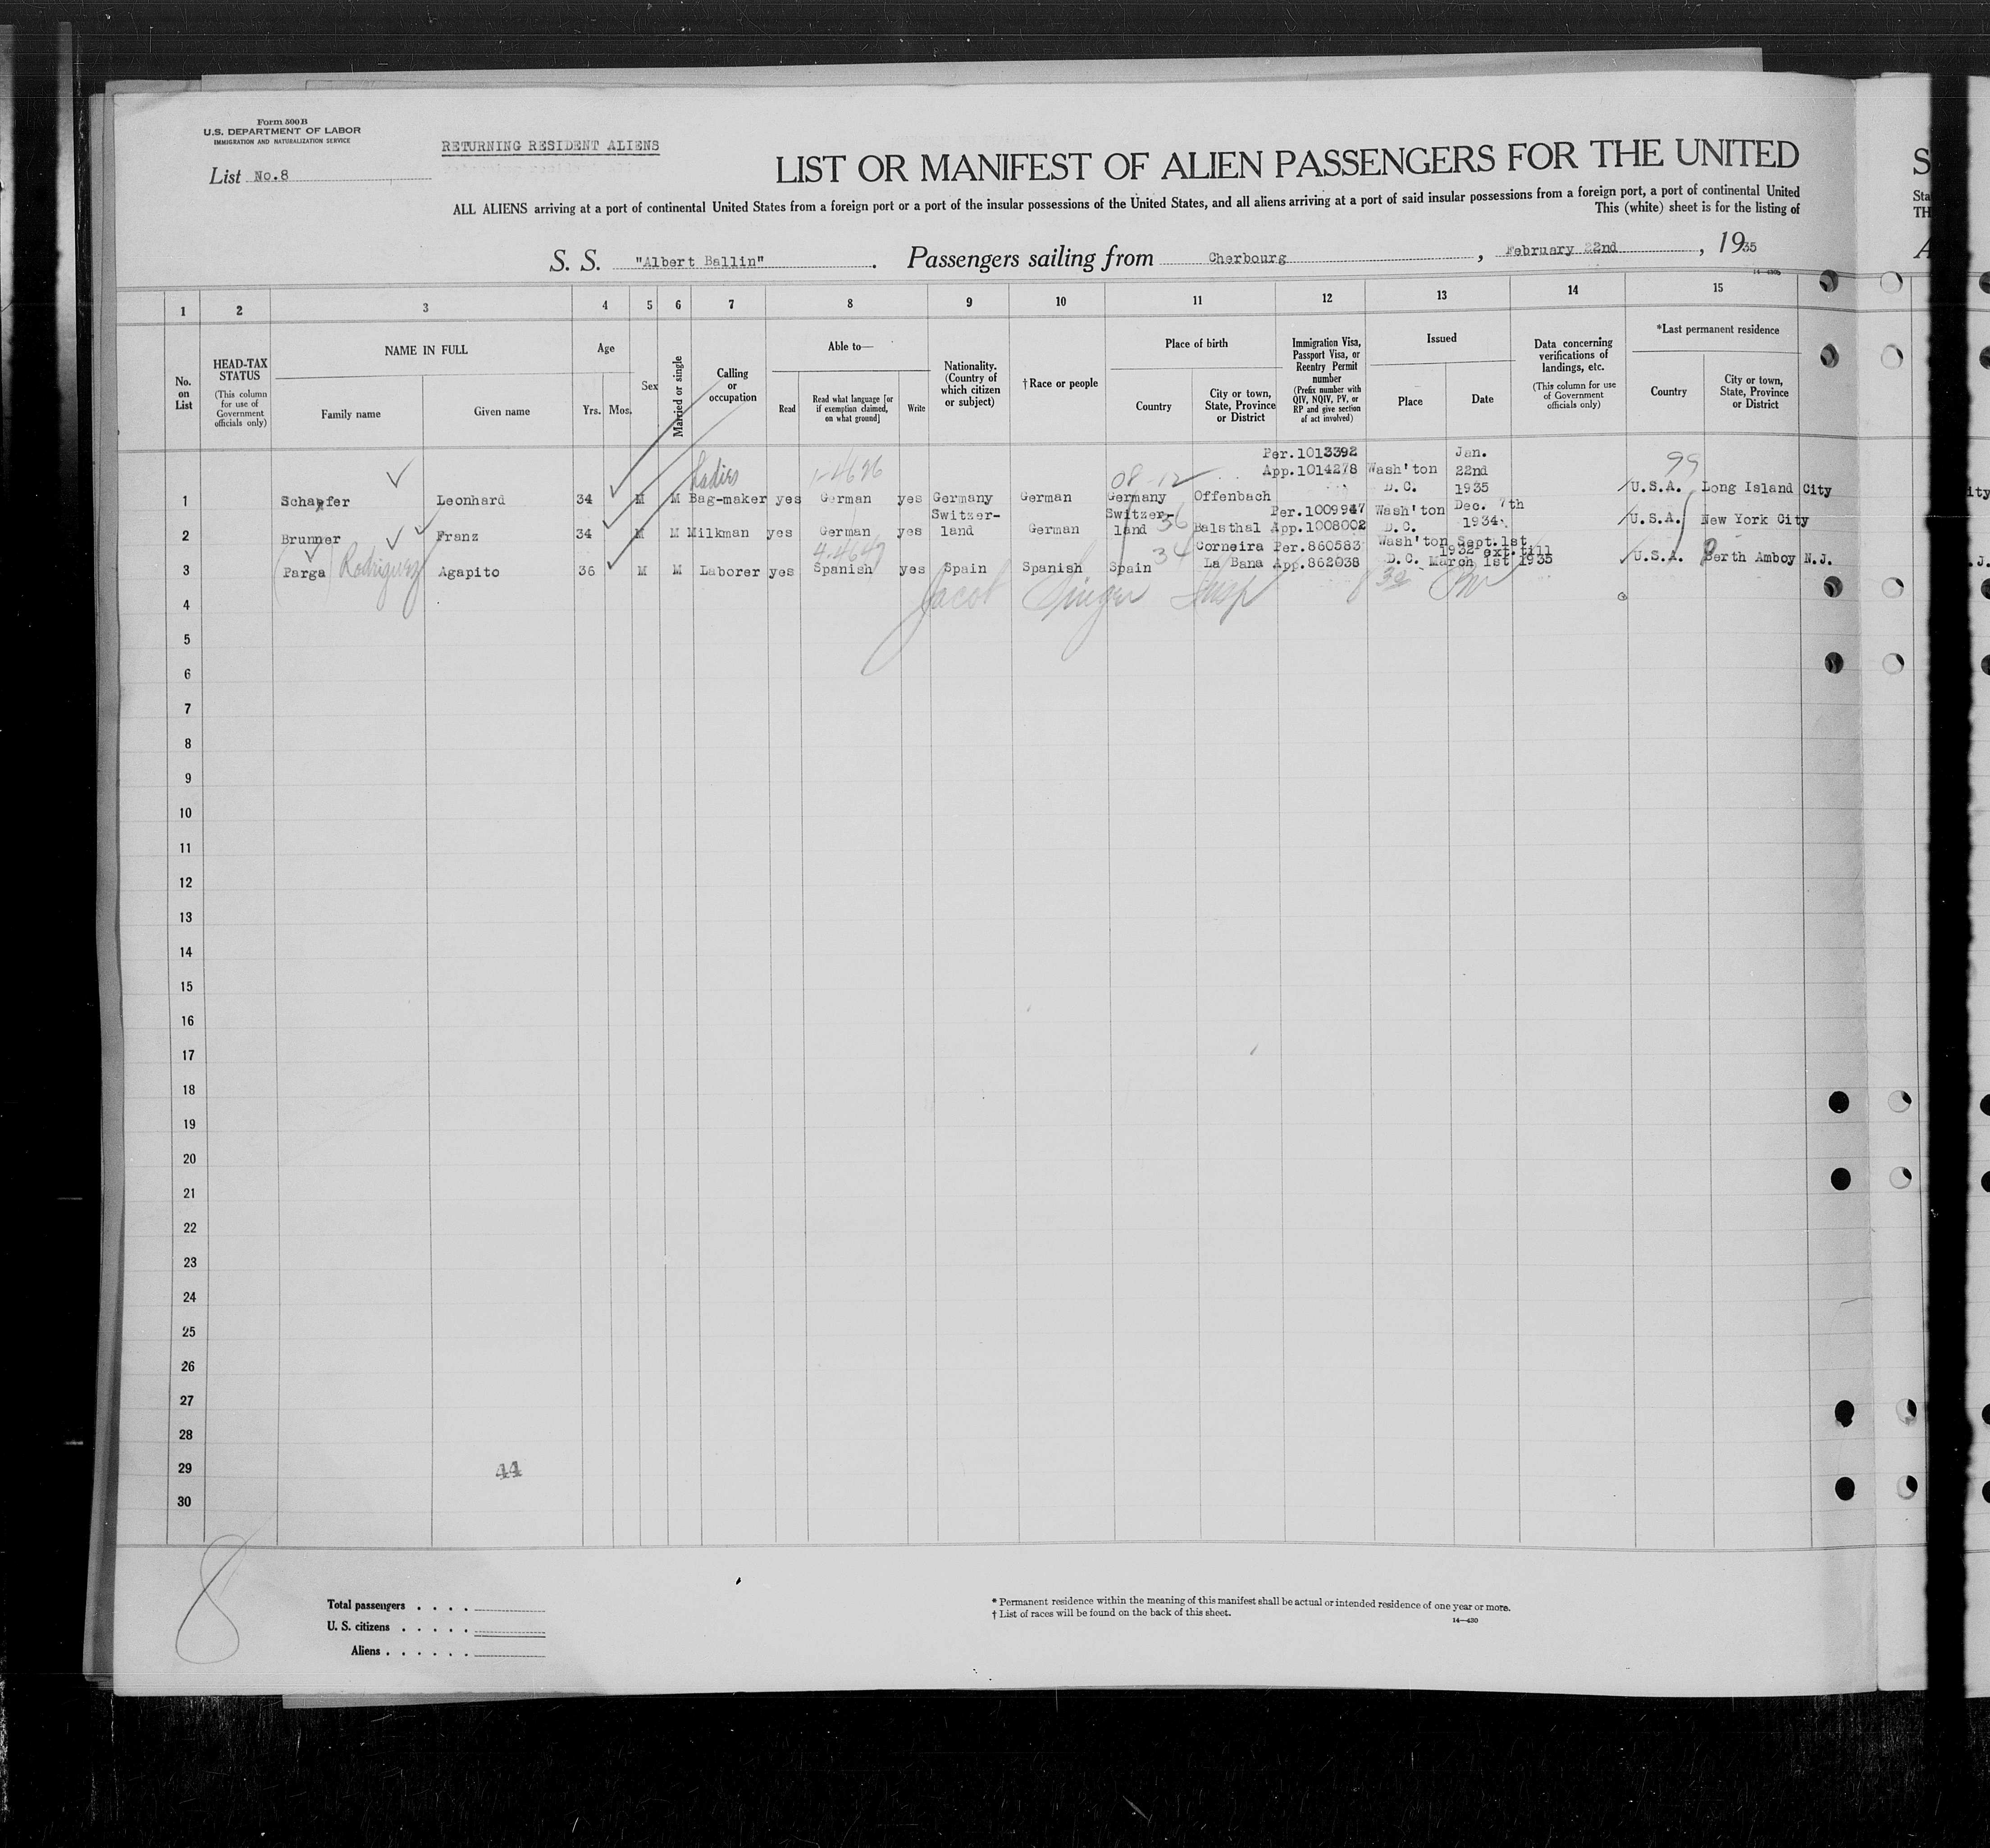 Form 500B
U.S. DEPARTMENT OF LABOR
IMMIGRATION AND NATURALIZATION SERVICE
RETURNING RESIDENT ALIENS
List No.8
LIST OR MANIFEST OF ALIEN PASSENGERS FOR THE UNITED
S
ALL ALIENS arriving at a port of continental United States from a foreign port or a port of the insular possessions of the United States, and all aliens arriving at a port of said insular possessions from a foreign port, a port of continental United
Sta
This (white) sheet is for the listing of
TH
S. S. "Albert Ballin". Passengers sailing from Cherbourg, February 22nd, 1935
A
14-430b
1 2 3 4 5 6 7 8 9 10 11 12 13 14 15
No. on List
HEAD-TAX STATUS
(This column for use of Government officials only)
NAME IN FULL
Family name
Given name
Age
Yrs. Mos.
Sex
Married or single
Calling or occupation
Able to—
Read
Read what language [or if exemption claimed, on what ground]
Write
Nationality. (Country of which citizen or subject)
† Race or people
Place of birth
Country
City or town, State, Province or District
Immigration Visa, Passport Visa, or Reentry Permit number
(Prefix number with QIV, NQIV, PV, or RP and give section of act involved)
Issued
Place
Date
Data concerning verifications of landings, etc.
(This column for use of Government officials only)
*Last permanent residence
Country
City or town, State, Province or District
Per.1013392 Jan.
Ladies 1-4696 08-12 App.1014278 Wash'ton 22nd 99
1 Schaefer Leonhard 34 M M Bag-maker yes German yes Germany German Germany Offenbach D.C. 1935 U.S.A. Long Island City
ity
Switzer- Switzer- 36 Per.1009947 Wash'ton Dec. 7th
2 Brunner Franz 34 M M Milkman yes German yes land German land Balsthal App.1008002 D.C. 1934. U.S.A. New York City
4-4647 34 Corneira Per.860583 Wash'ton Sept.1st
1932 ext.till
3 (Parga) Rodriguez Agapito 36 M M Laborer yes Spanish yes Spain Spanish Spain La Bana App.862038 D.C. March 1st 1935 U.S.A. Perth Amboy N.J.
.J.
4 Jacob Singer Insp
5
6
7
8
9
10
11
12
13
14
15
16
17
18
19
20
21
22
23
24
25
26
27
28
29 44
30
8
Total passengers . . . .
U. S. citizens . . . . .
Aliens . . . . . .
* Permanent residence within the meaning of this manifest shall be actual or intended residence of one year or more.
† List of races will be found on the back of this sheet.
14—430